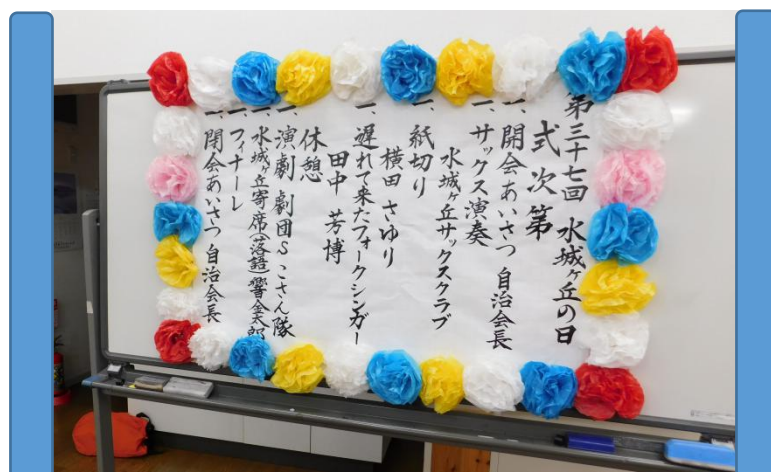 第三十七回 水城ヶ丘の日
式次第
一、開会あいさつ 自治会長
一、サックス演奏
水城ヶ丘サックスクラブ
一、紙切り
横田 さゆり
一、遅れて来たフォークシンガー
田中 芳博
休憩
一、演劇 劇団Sこさん隊
一、水城ヶ丘寄席(落語)響金太郎
一、フィナーレ
一、閉会あいさつ 自治会長